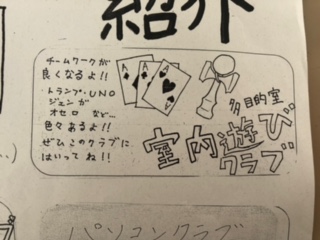 紹介
チームワークが
良くなるよ!!
トランプ・UNO
ジェンガ
オセロ など...
色々あるよ!!
ぜひこのクラブに
はいってね!!
A
A
多目的室
室内遊び
クラブ
パソコンクラブ